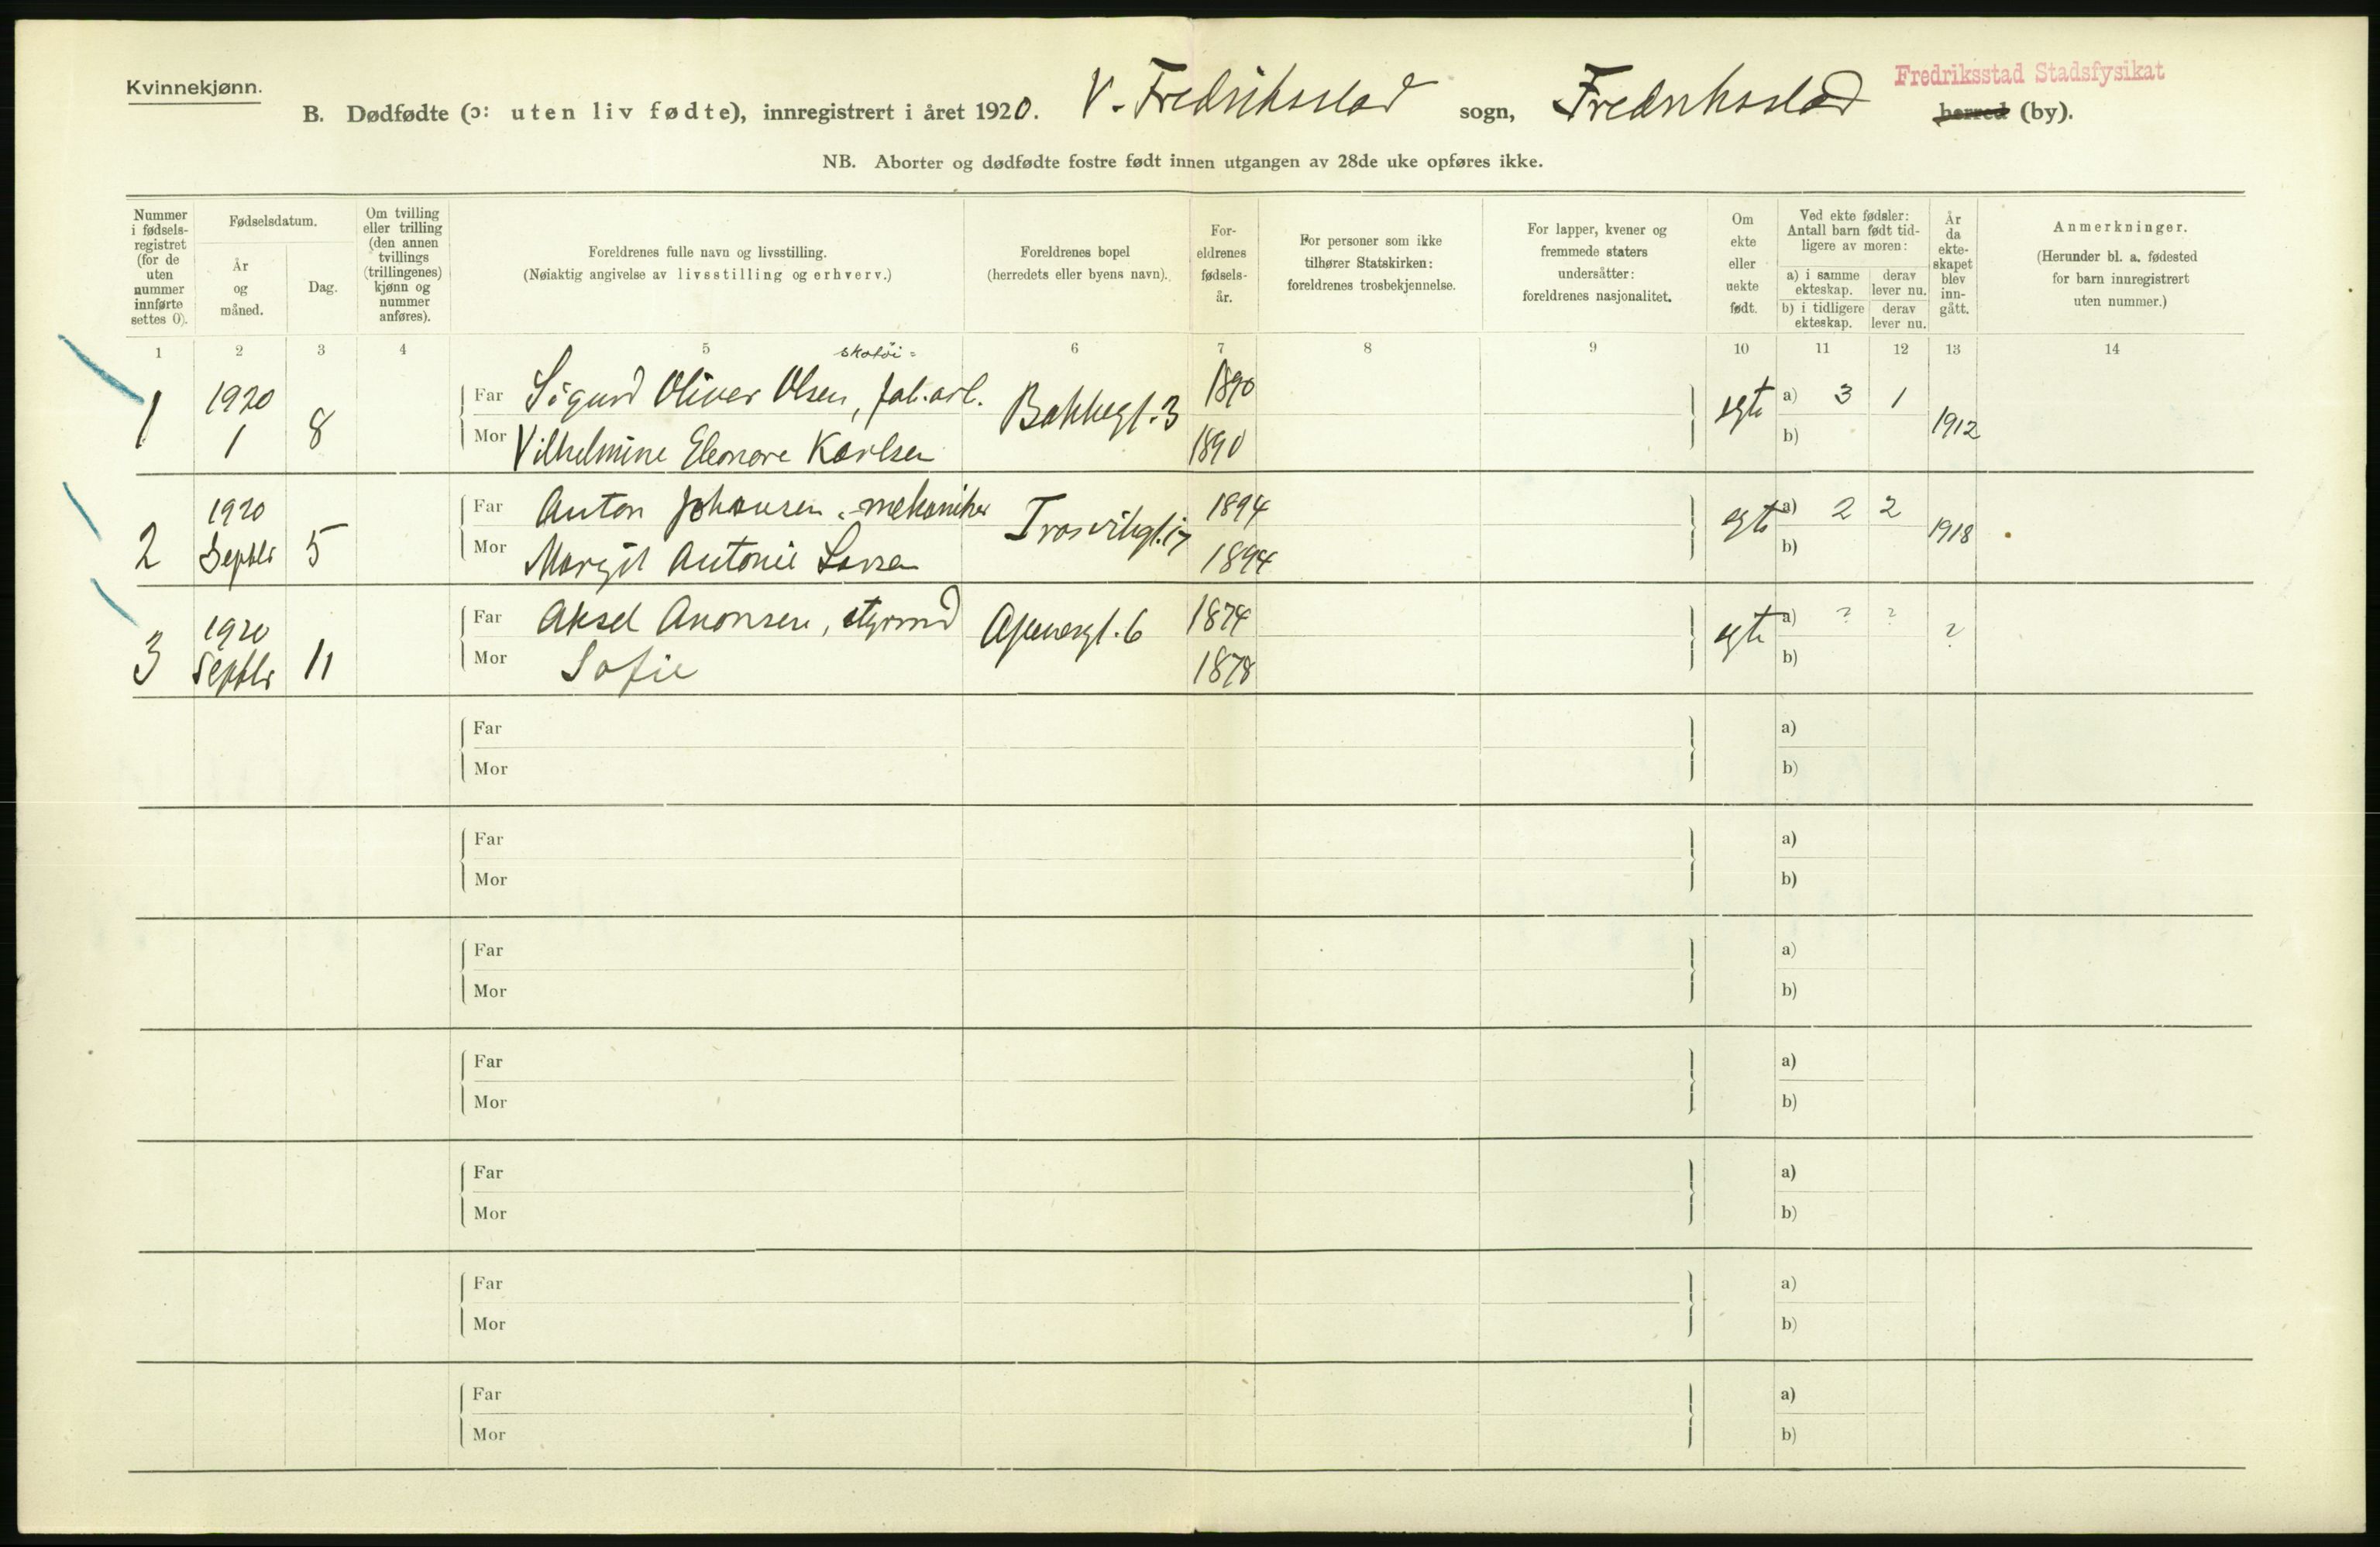 Kvinnekjønn.
Fredriksstad Stadsfysikat
B. Dødfødte (ɔ: uten liv fødte), innregistrert i året 1920. V. Fredriksstad sogn, Fredriksstad herred (by).
NB. Aborter og dødfødte fostre født innen utgangen av 28de uke opføres ikke.
Nummer i fødsels-registret (for de uten nummer innførte settes 0).
Fødselsdatum.
År og måned.
Dag.
Om tvilling eller trilling (den annen tvillings (trillingenes) kjønn og nummer anføres).
Foreldrenes fulle navn og livsstilling.
(Nøiaktig angivelse av livsstilling og erhverv.)
Foreldrenes bopel
(herredets eller byens navn).
For-eldrenes fødsels-år.
For personer som ikke tilhører Statskirken: foreldrenes trosbekjennelse.
For lapper, kvener og fremmede staters undersåtter: foreldrenes nasjonalitet.
Om ekte eller uekte født.
Ved ekte fødsler: Antall barn født tid-ligere av moren:
a) i samme ekteskap.
derav lever nu.
b) i tidligere ekteskap.
derav lever nu.
År da ekte-skapet blev inn-gått.
Anmerkninger.
(Herunder bl. a. fødested for barn innregistrert uten nummer.)
1 2 3 4 5 6 7 8 9 10 11 12 13 14
skotøi=
1 1920 1 8 Far Sigurd Oliver Olsen, fab.arb. Bakkegt. 3 1890 egte a) 3 1 1912
Mor Vilhelmine Eleonore Karlsen 1890 b)
2 1920 Septbr 5 Far Anton Johansen, mekaniker Trosvikgt. 17 1894 egte a) 2 2 1918
Mor Margit Antonie 1894 b)
3 1920 Septbr 11 Far Aksel styrmd 1874 egte a) ? ? ?
Mor Sofie 1878 b)
Far a)
Mor b)
Far a)
Mor b)
Far a)
Mor b)
Far a)
Mor b)
Far a)
Mor b)
Far a)
Mor b)
Far a)
Mor b)